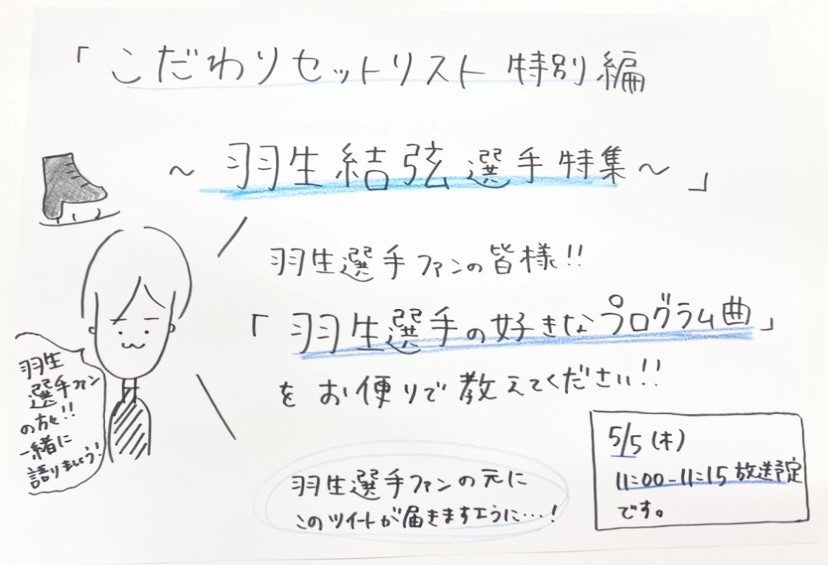 「こだわりセットリスト特別編
~羽生結弦選手特集~」
羽生選手ファンの皆様!!
「羽生選手の好きなプログラム曲」
をお便りで教えてください!!
羽生
選手ファン
の方も!!
一緒に
語りましょう!
羽生選手ファンの元に
このツイートが届きますように…!
5/5(木)
11:00-11:15放送予定
です。